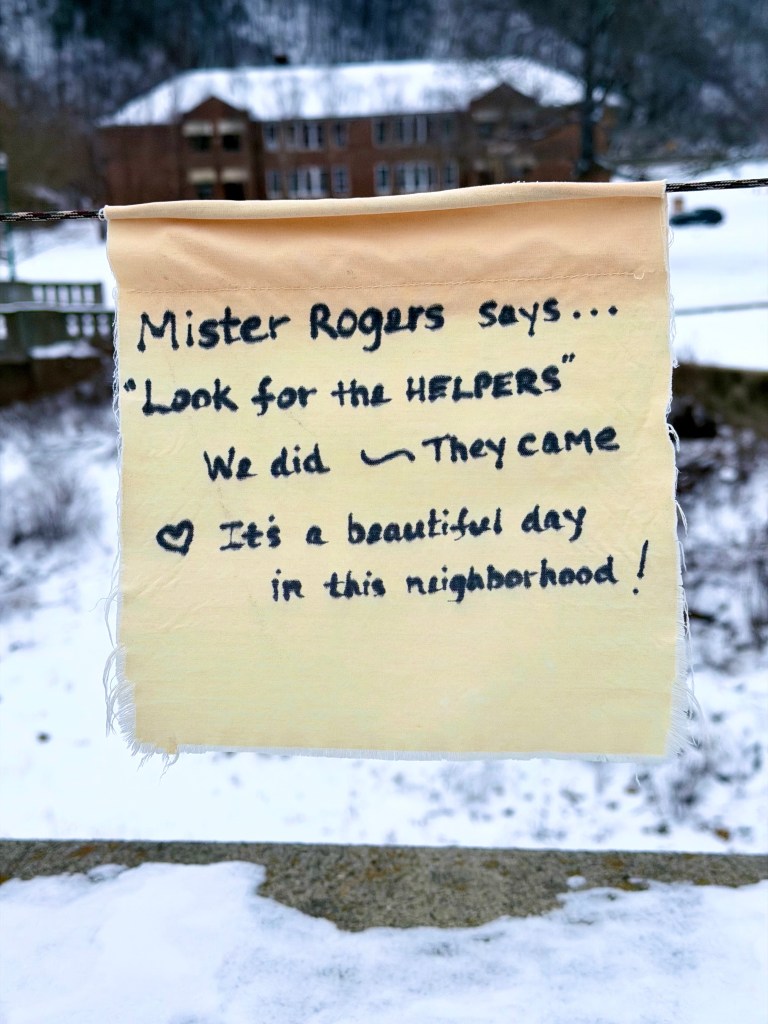 Mister Rogers says...
"Look for the HELPERS"
We did ~ They came
♡ It's a beautiful day
in this neighborhood!